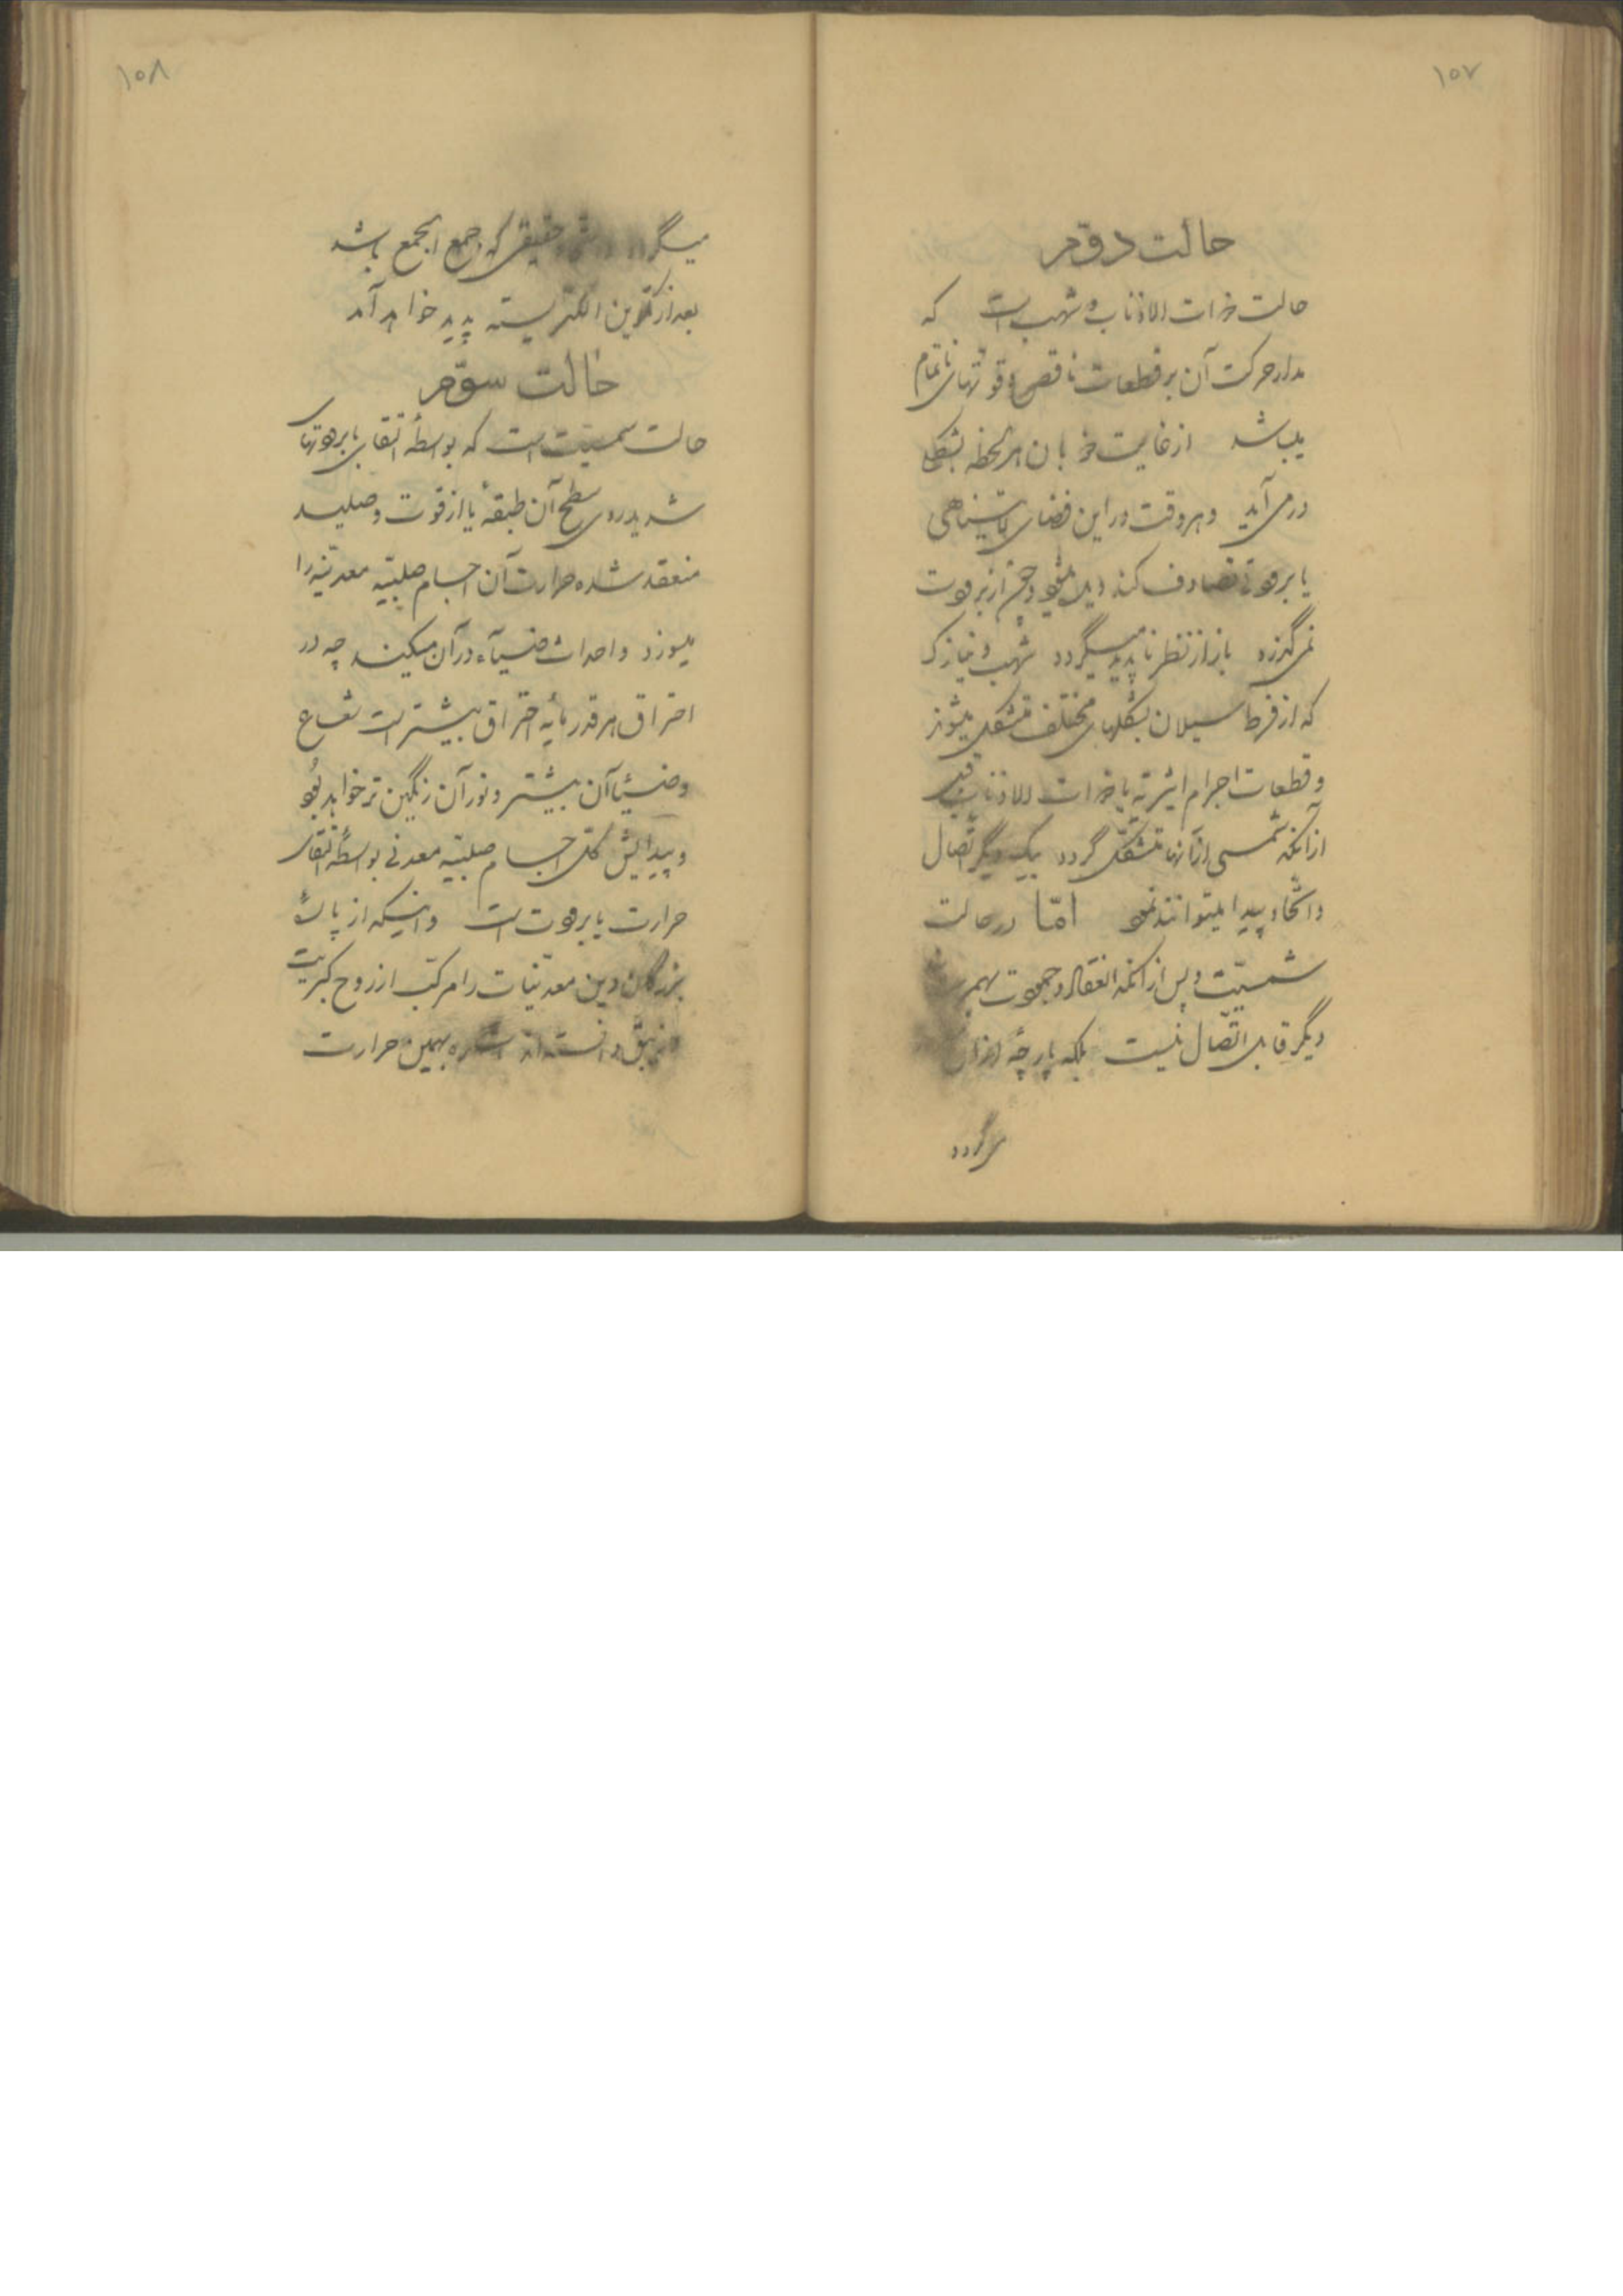 ۱۵۷
حالت دوّم
حالت ذوات الاذناب و شهب است که
مدار حرکت آن بر قطعات ناقص و قوتهای ناتمام
میباشد از غایت ذوبان هر لحظه بشکلی
در می‌آید و هر وقت در این فضای نامتناهی
یا برودتی تصادف کند دیده میشود و چون از برودت
می گذرد باز از نظر ناپدید میگردد شهب و نیازک
که از فرط سیلان بشکلهای مختلف متشکل میشوند
و قطعات اجرام اثیریّه یا ذوات الاذناب قبل
از آنکه شمسی از آنها متشکّل گردد بیک دیگر اتّصال
و اتّحاد پیدا میتوانند نمود امّا در حالت
شمسیّت و پس از آنکه انعقاد و جمودت بهم
دیگر قابل اتّصال نیست بلکه پارچهٔ از آن
می گردد
۱۵۸
میگردد حقیقی که جمع الجمع باشد
بعد از تکوین الکتریسته پدید خواهد آمد
حالت سوّم
حالت شمسیّت است که بواسطهٔ التقای با برودتهای
شدید روی سطح آن طبقهٔ یا از قوت و صلید
منعقد شده حرارت آن اجسام صلبیّه معدنیّه را
میسوزد و احداث ضیاء در آن میکند چه در
احتراق هر قدر مایه احتراق بیشتر است شعاع
و ضیاء آن بیشتر و نور آن رنگین تر خواهد بود
و پیدایش کلّی اجسام صلبیّه معدنی بواسطهٔ التقای
حرارت با برودت است و اینکه از
بزرگان دین معدنیّات را مرکّب از روح کبریت
و زیبق دانسته اند اشاره بهمین حرارت